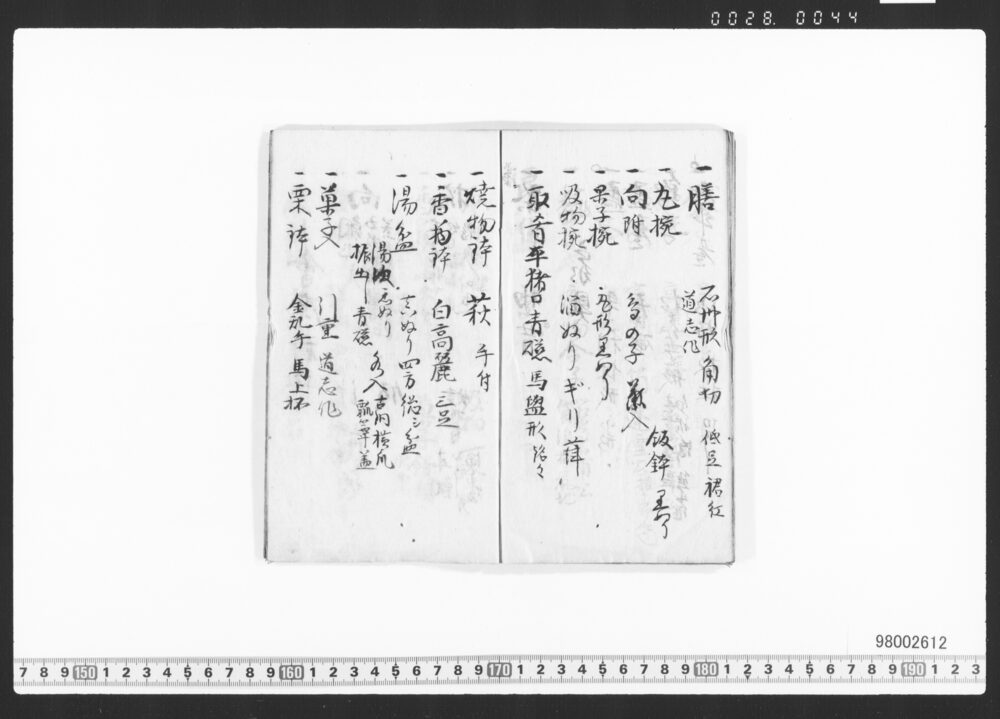 0028. 0044
一 膳 石州形 角切 低足 裙紅
道志作
一 丸椀 飯鉢 黒ぬり
一 向附 手の子 藥入
一 菓子椀 丸形黒ぬり
一 吸物椀 溜ぬり ギリ蒔
一 取肴平猪口 青磁 馬盥形 銘々
一 焼物鉢 萩 手付
一 香物鉢 白高麗 三足
一 湯盆 真ぬり 四方 総三盆
湯次 真ぬり 香入 古内 横爪
振出し 青磁 瓢箪蓋
一 菓子入 引重 道志作
一 栗鉢 金乱手 馬上杯
98002612
7 8 9 150 1 2 3 4 5 6 7 8 9 160 1 2 3 4 5 6 7 8 9 170 1 2 3 4 5 6 7 8 9 180 1 2 3 4 5 6 7 8 9 190 1 2 3